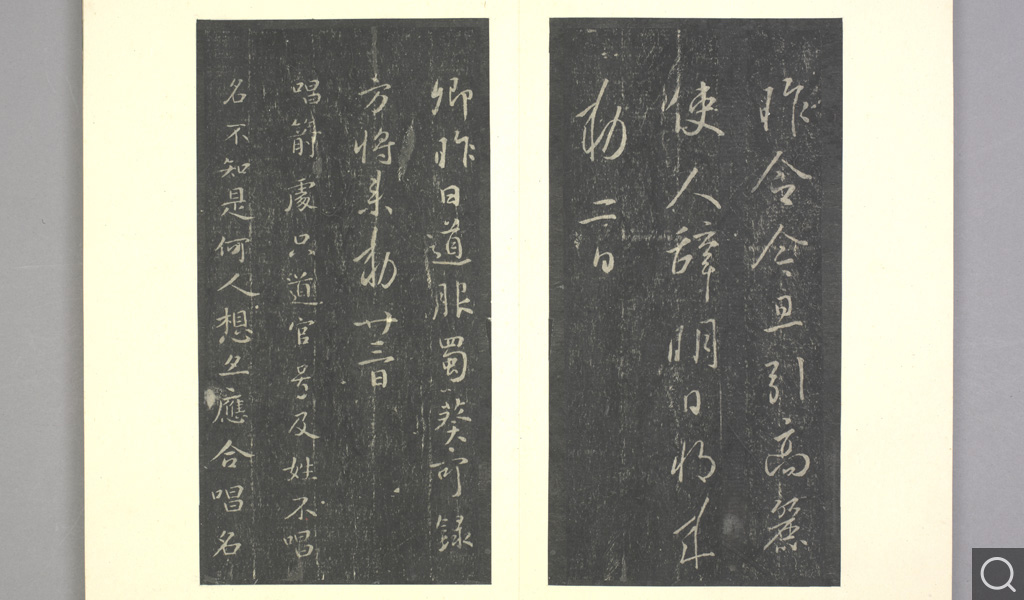 昨令今旦引高麗
使人辞明日将来
勅二日
卿昨日道服蜀葵可録
方将来勅廿三日
唱箭處只道官号及姓不唱
名不知是何人想亦應合唱名